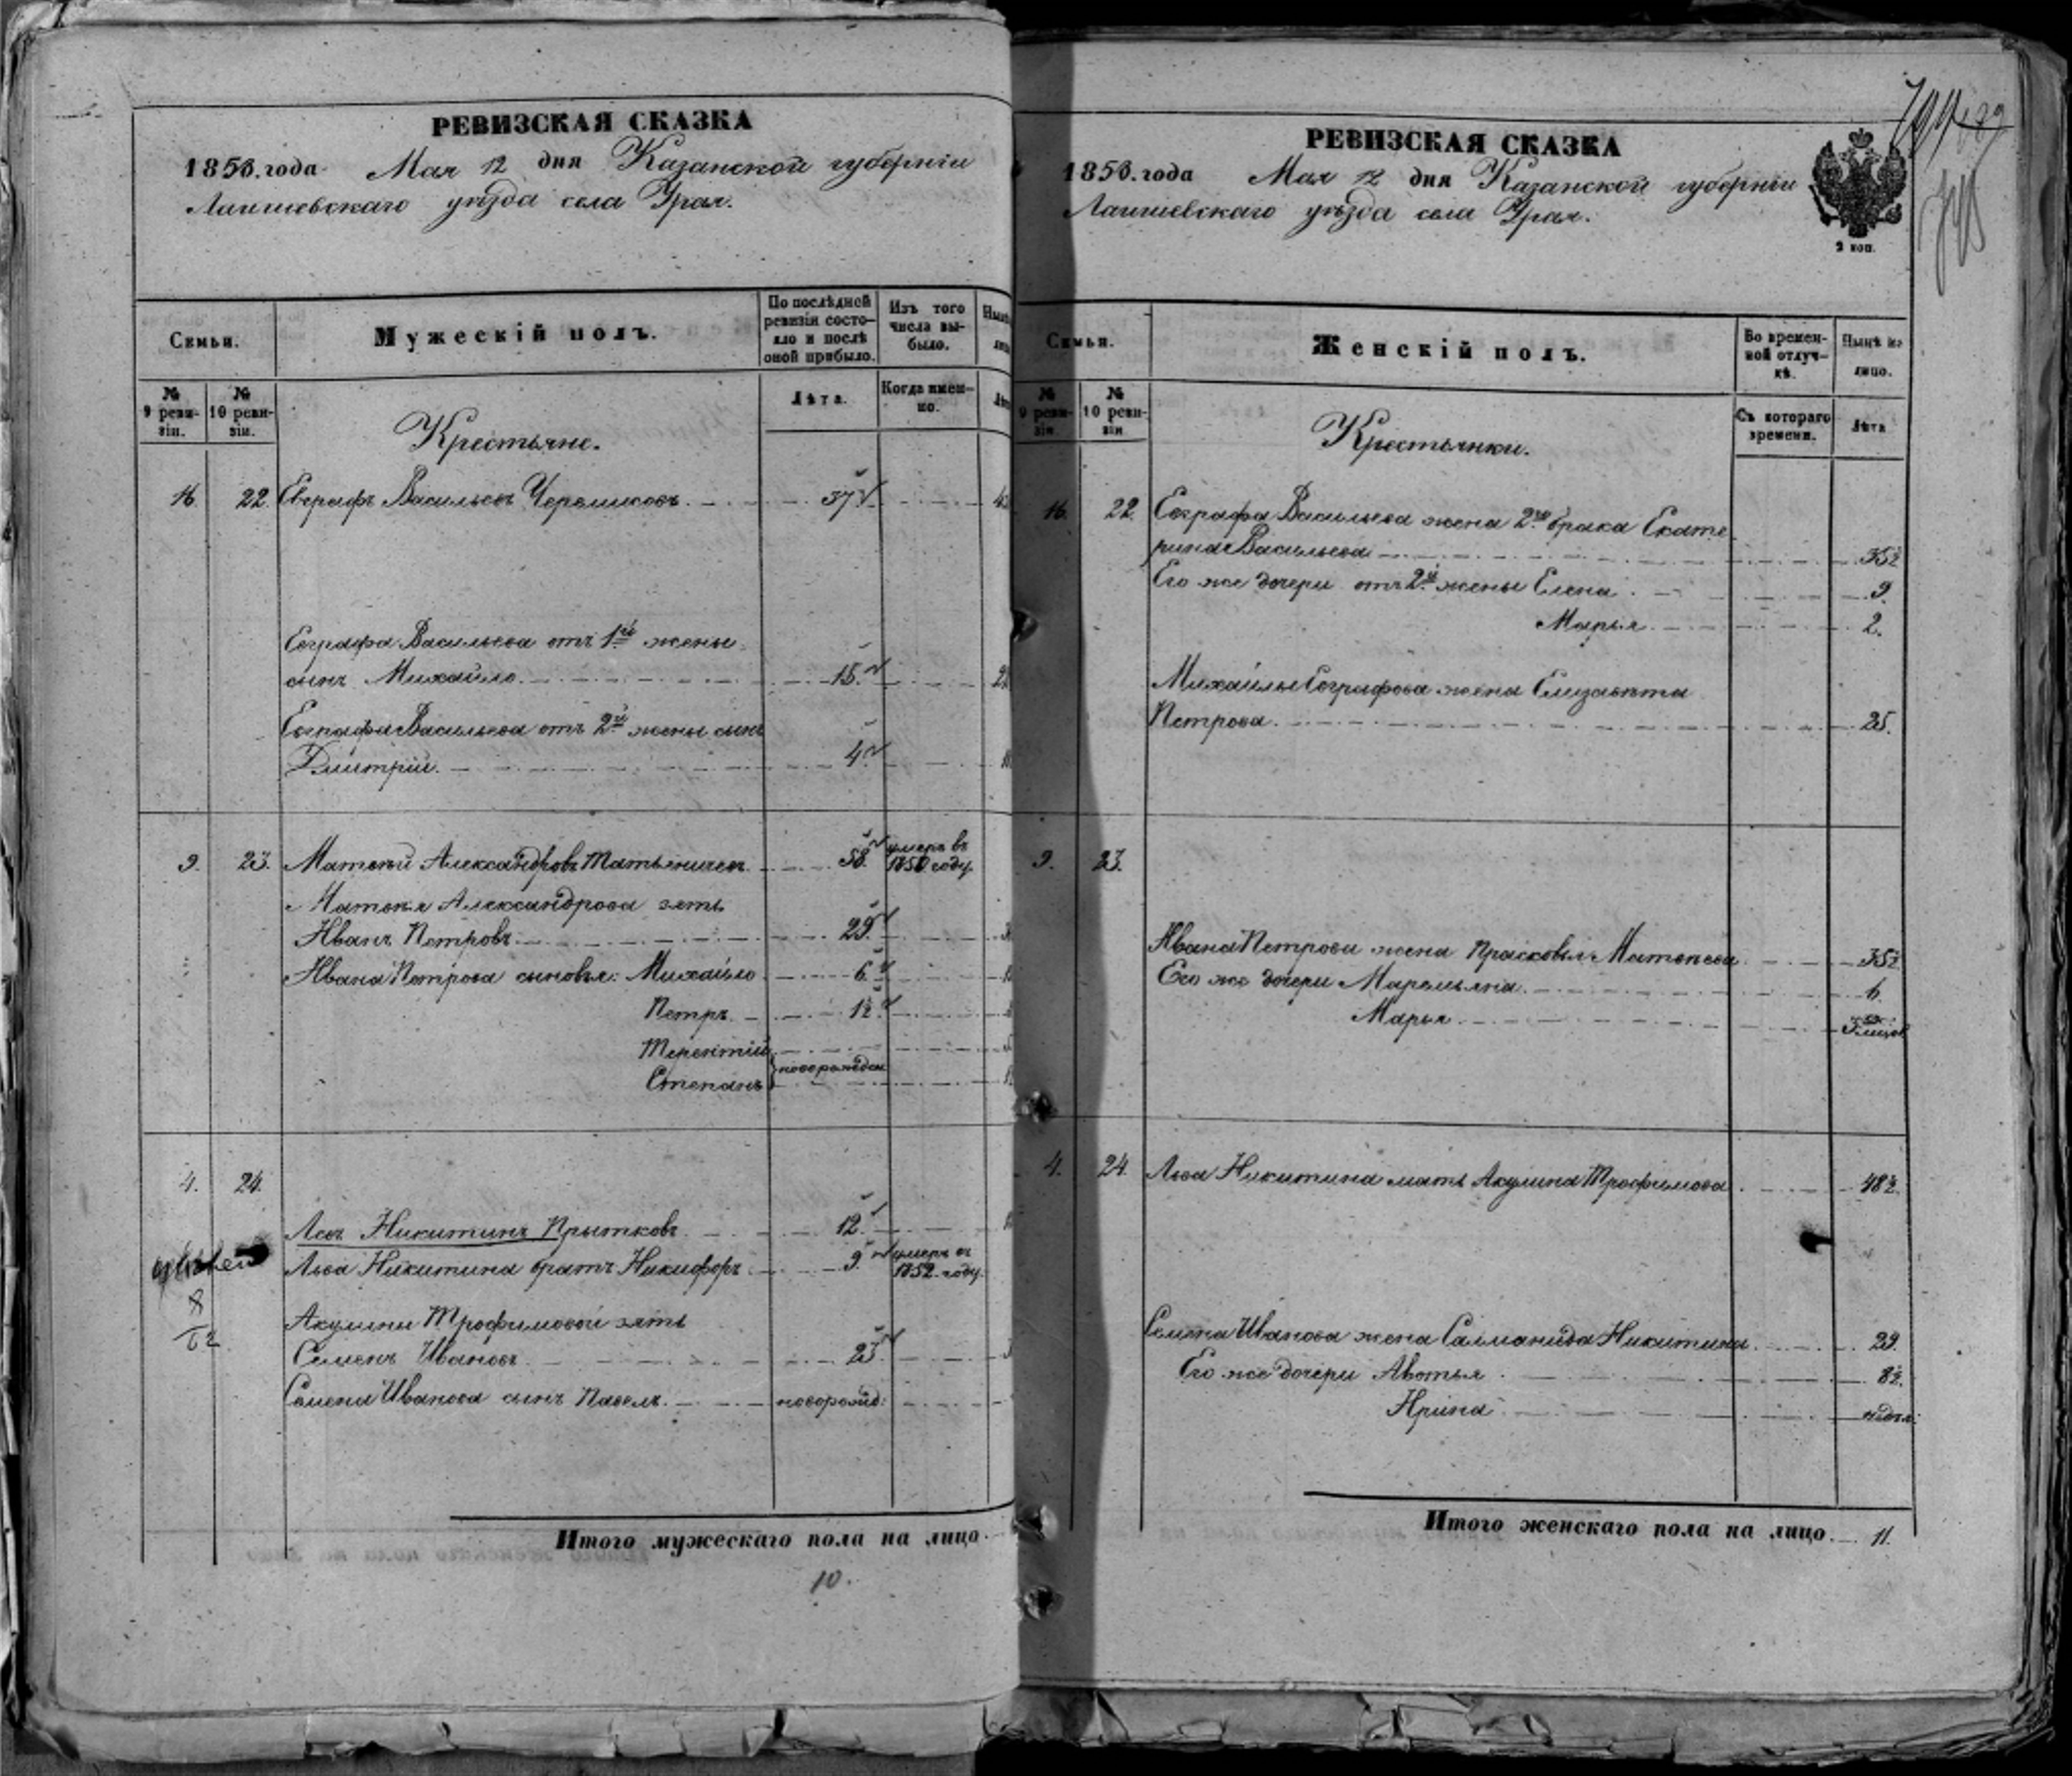 РЕВИЗСКАЯ СКАЗКА
1858. года Мая 12 дня Казанской губерніи
Лаишевскаго уѣзда села Урая.
Семьи.
Мужескій полъ.
По послѣдней ревизіи состояло и послѣ оной прибыло.
Изъ того числа выбыло.
№ 9 ревизіи.
№ 10 ревизіи.
Лѣта.
Когда именно.
Крестьяне.
16. 22. Евграфъ Васильевъ 37
Евграфа Васильева отъ 1й жены
сынъ Михайло. 15.
Евграфа Васильева отъ 2й жены сынъ
Дмитрій. 4.
9. 23. Матвѣй Александровъ 58. умеръ въ
1850 году.
Матвѣя Александрова зять
Иванъ Петровъ 29.
Ивана Петрова сыновья: Михайло 6.
Петръ 1½
Терентій
новорожден
Степанъ
4. 24.
Левъ Никитинъ Прытковъ 12.
Льва Никитина братъ Никифоръ 9. умеръ въ
1852 году.
Акулины Трофимовой зять
Семенъ Ивановъ 23.
Семена Иванова сынъ Павелъ. новорожд:
Итого мужескаго пола на лицо
10.
РЕВИЗСКАЯ СКАЗКА
1858. года Мая 12 дня Казанской губерніи
Лаишевскаго уѣзда села Урая.
2 коп.
Семьи.
Женскій полъ.
Во временной отлучкѣ.
Нынѣ на лицо.
№ 9 ревизіи
№ 10 ревизіи
Съ котораго времени.
Лѣта
Крестьянки.
16. 22. Евграфа Васильева жена 2го брака Екате
рина Васильева 35½
Его же дочери отъ 2й жены Елена 9.
Марья 2.
Михайлы Евграфова жена Елизавѣта
Петрова. 25.
9. 23.
Ивана Петрова жена Прасковья Матвѣева 35½
Его же дочери Маремьяна 6.
Марья
4. 24. Льва Никитина мать Акулина Трофимова 48½
Семена Иванова жена Саломанида Никитина 29.
Его же дочери Авотья 8½.
Ирина недѣл:
Итого женскаго пола на лицо 11.